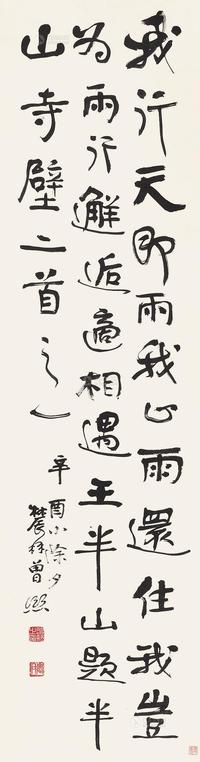 我行天即雨我止雨還住我豈
為雨行邂逅適相遇王半山題半
山寺壁二首之一
辛酉小除夕
農髯曾熙